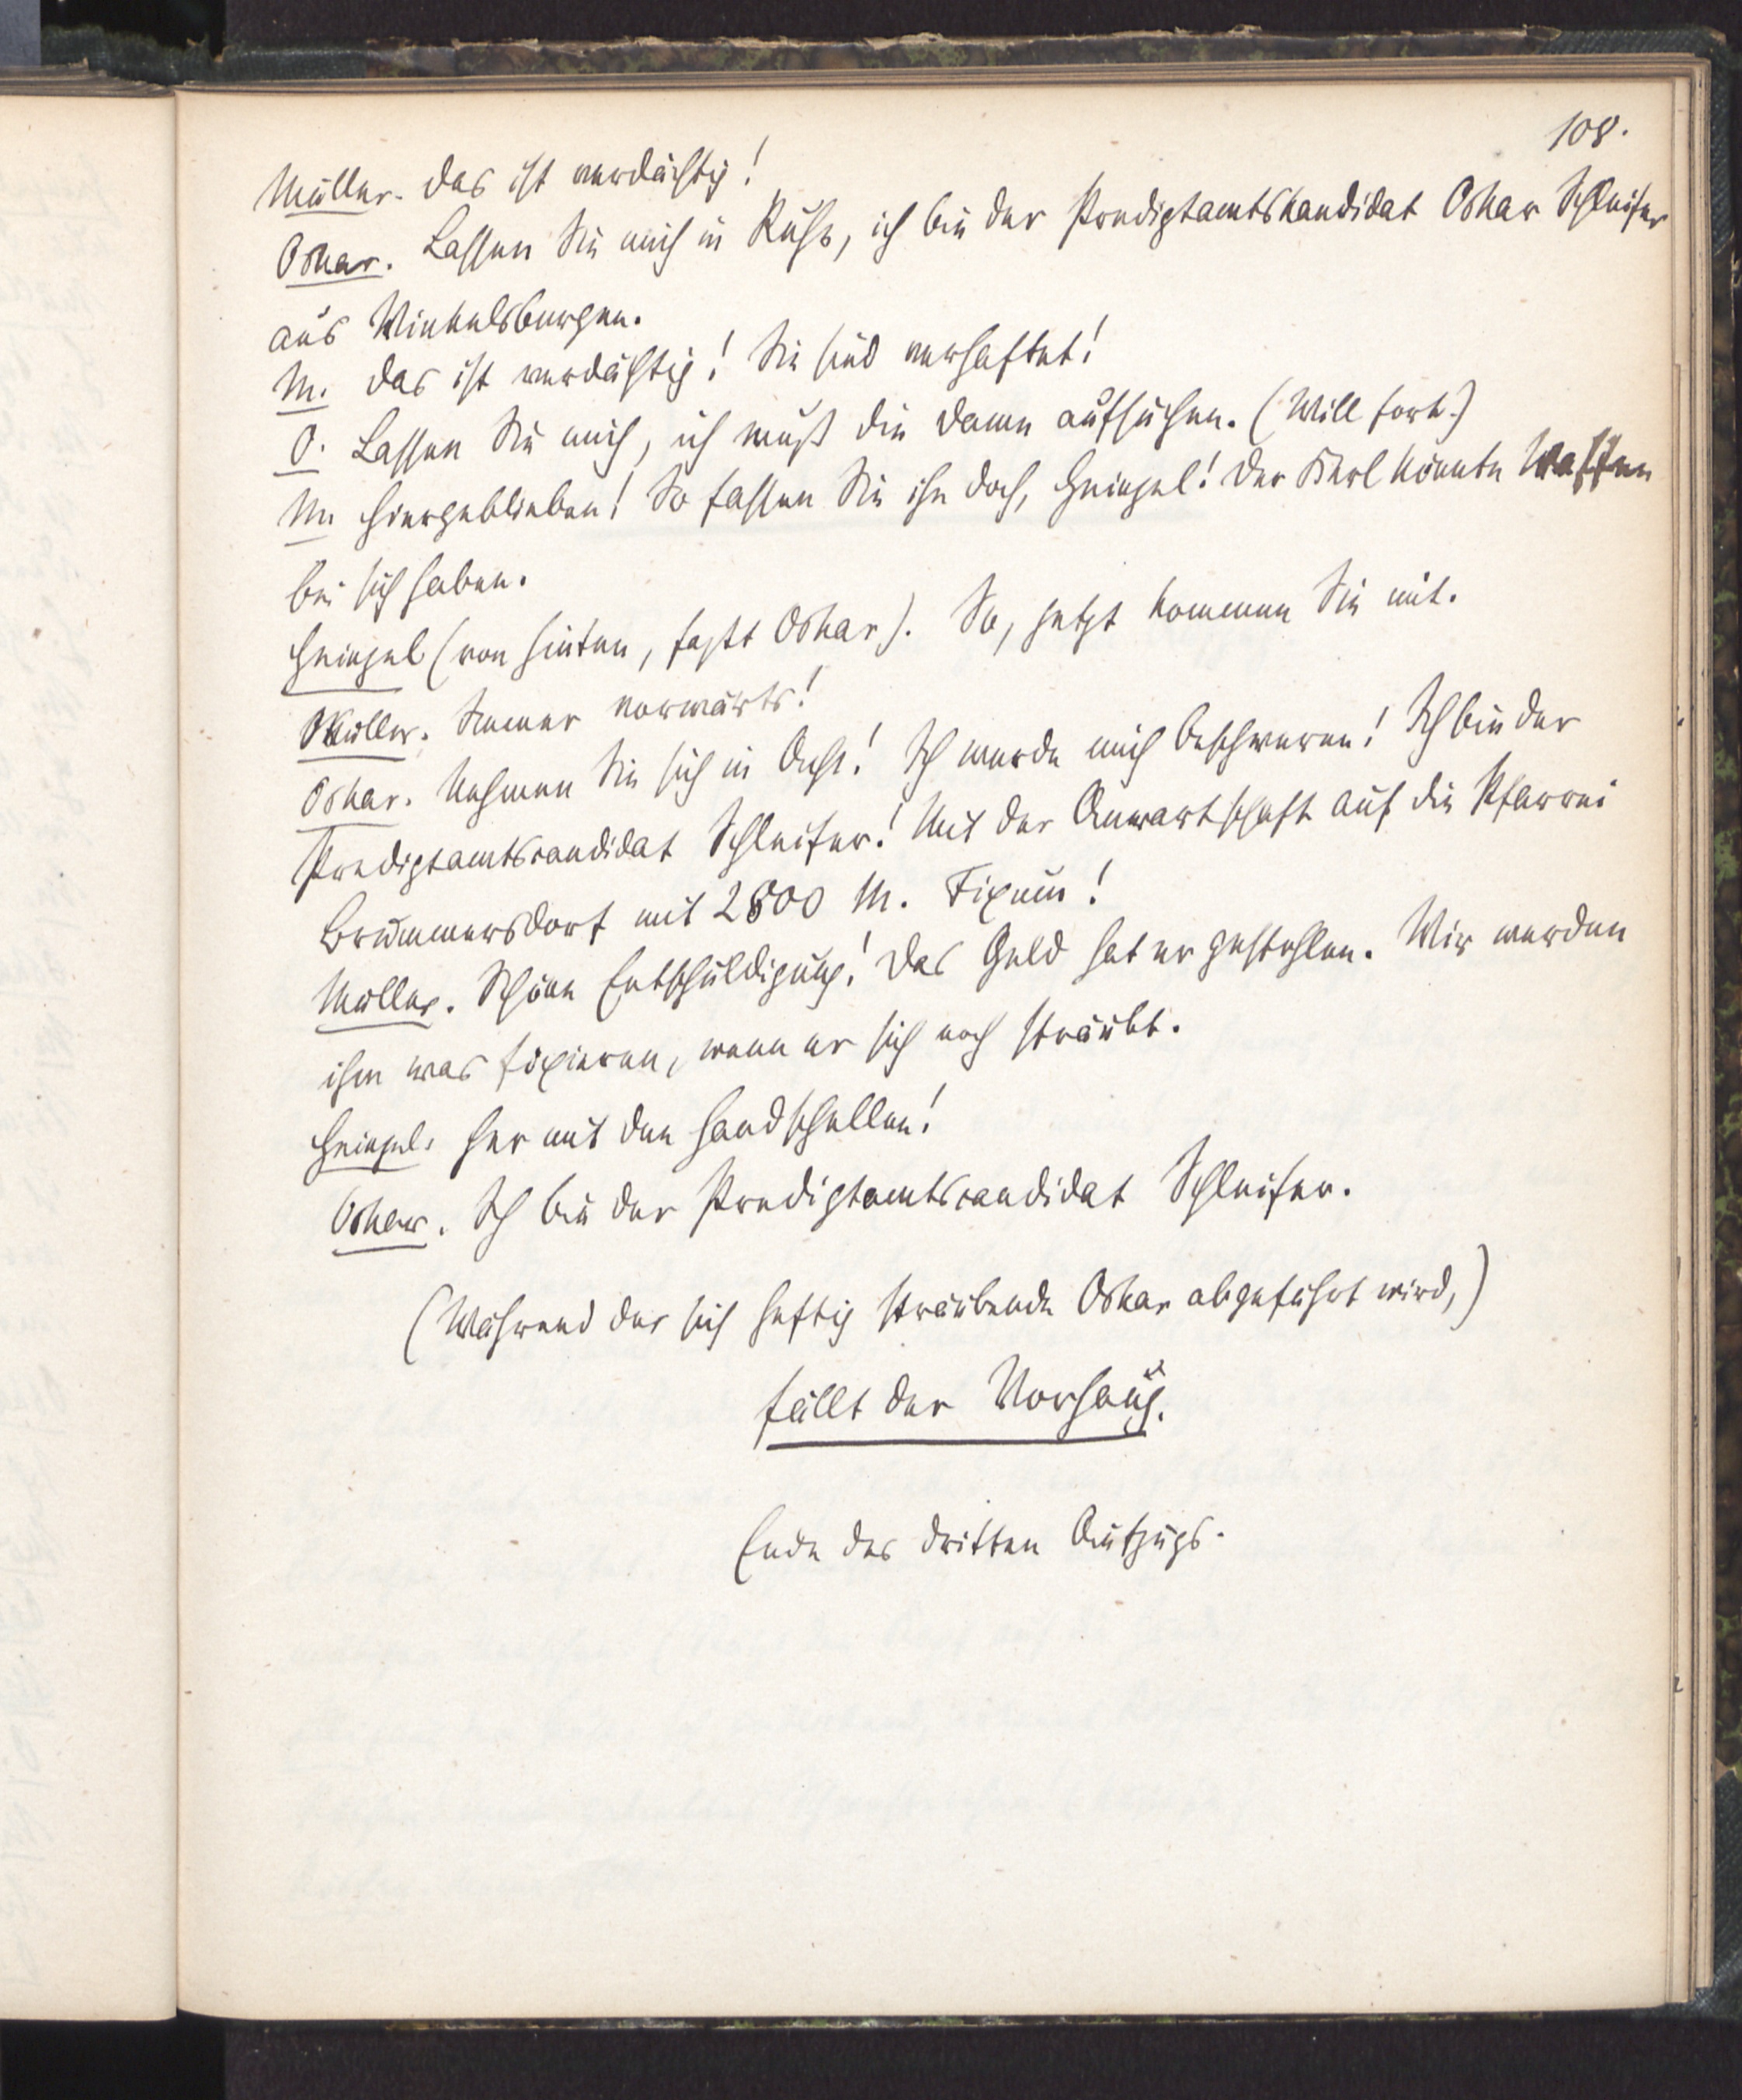 108.
Müller. Das ist verdächtig!
Oskar. Lassen Sie mich in Ruhe, ich bin der Predigtamtskandidat Oskar Schleifer
aus Winkelsbergen.
M. Das ist verdächtig! Sie sind verhaftet!
O. Lassen Sie mich, ich muß die Dame aufsuchen. (Will fort.)
M. Hiergeblieben! So fassen Sie ihn doch, Heinzel! Der Kerl könnte Waffen
bei sich haben.
Heinzel (von hinten, faßt Oskar). So, jetzt kommen Sie mit.
Müller. Immer vorwärts!
Oskar. Nehmen Sie sich in Acht! Ich werde mich beschweren! Ich bin der
Predigtamtscandidat Schleifer! Mit der Anwartschaft auf die Pfarrei
Brummersdorf mit 2800 M. Fixum!
Müller. Schöne Entschuldigung! Das Geld hat er gestohlen. Wir werden
ihm was fixieren, wenn er sich noch sträubt.
Heinzel. Her mit den Handschellen!
Oskar. Ich bin der Predigtamtscandidat Schleifer.
(Während der sich heftig sträubende Oskar abgeführt wird,)
fällt der Vorhang.
Ende des dritten Aufzugs.